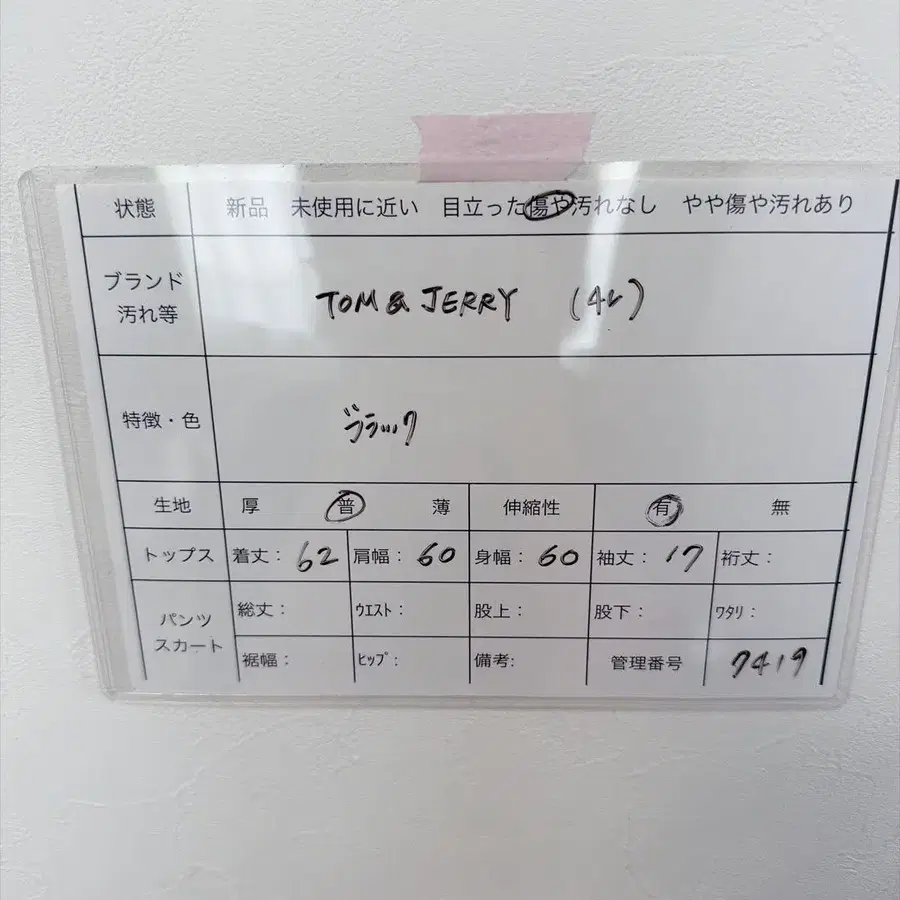 状態 新品 未使用に近い 目立った傷や汚れなし やや傷や汚れあり
ブランド
汚れ等
TOM & JERRY (4L)
特徴・色 ブラック
生地 厚 普 薄 伸縮性 有 無
トップス 着丈: 62 肩幅: 60 身幅: 60 袖丈: 17 裄丈:
パンツ
スカート
総丈: ウエスト: 股上: 股下: ワタリ:
裾幅: ヒップ: 備考: 管理番号 7419